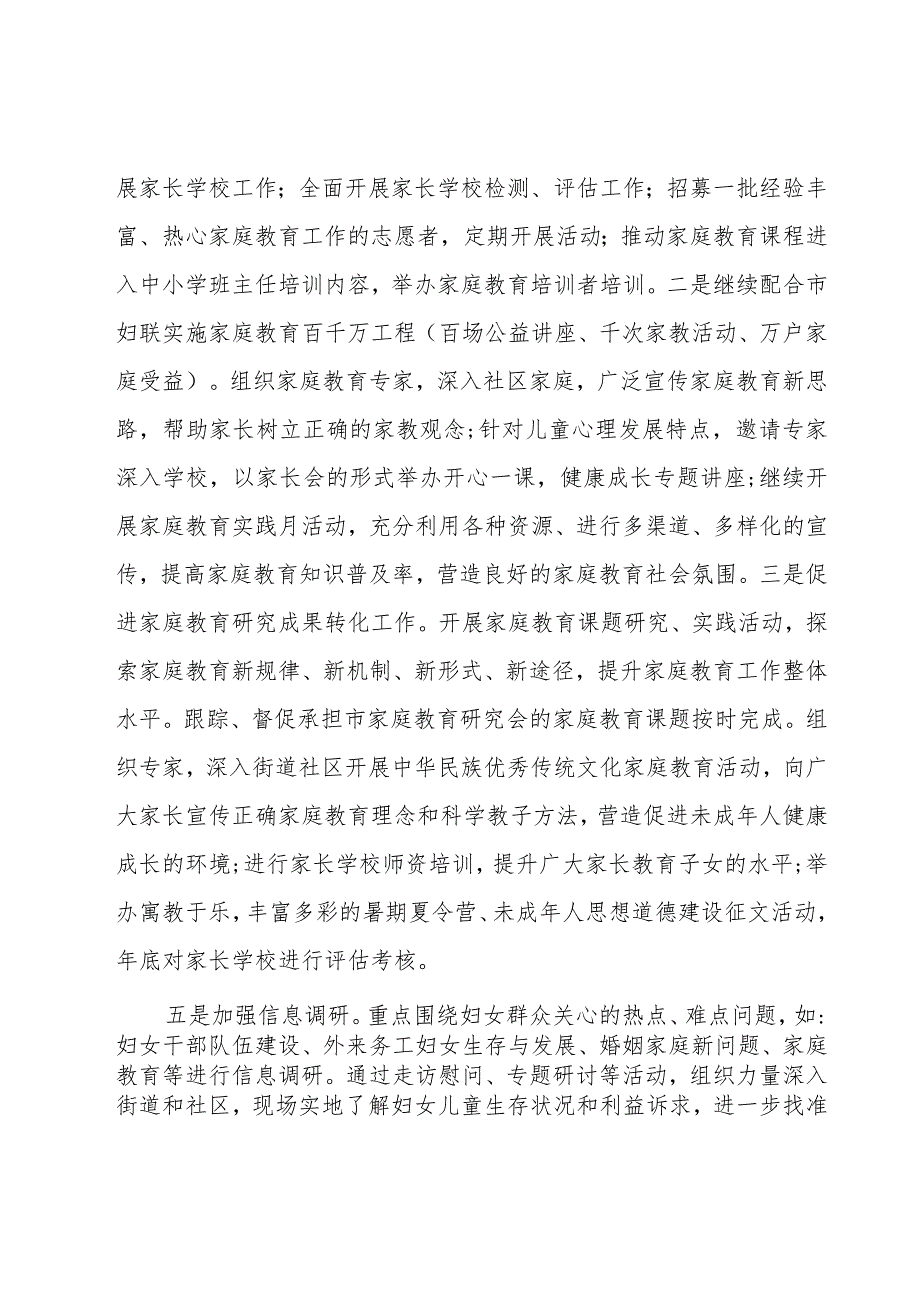 展家长学校工作；全面开展家长学校检测、评估工作；招募一批经验丰
富、热心家庭教育工作的志愿者，定期开展活动；推动家庭教育课程进
入中小学班主任培训内容，举办家庭教育培训者培训。二是继续配合市
妇联实施家庭教育百千万工程（百场公益讲座、千次家教活动、万户家
庭受益）。组织家庭教育专家，深入社区家庭，广泛宣传家庭教育新思
路，帮助家长树立正确的家教观念;针对儿童心理发展特点，邀请专家
深入学校，以家长会的形式举办开心一课，健康成长专题讲座;继续开
展家庭教育实践月活动，充分利用各种资源、进行多渠道、多样化的宣
传，提高家庭教育知识普及率，营造良好的家庭教育社会氛围。三是促
进家庭教育研究成果转化工作。开展家庭教育课题研究、实践活动，探
索家庭教育新规律、新机制、新形式、新途径，提升家庭教育工作整体
水平。跟踪、督促承担市家庭教育研究会的家庭教育课题按时完成。组
织专家，深入街道社区开展中华民族优秀传统文化家庭教育活动，向广
大家长宣传正确家庭教育理念和科学教子方法，营造促进未成年人健康
成长的环境;进行家长学校师资培训，提升广大家长教育子女的水平;举
办寓教于乐，丰富多彩的暑期夏令营、未成年人思想道德建设征文活动，
年底对家长学校进行评估考核。
五是加强信息调研。重点围绕妇女群众关心的热点、难点问题，如:
妇女干部队伍建设、外来务工妇女生存与发展、婚姻家庭新问题、家庭
教育等进行信息调研。通过走访慰问、专题研讨等活动，组织力量深入
街道和社区，现场实地了解妇女儿童生存状况和利益诉求，进一步找准